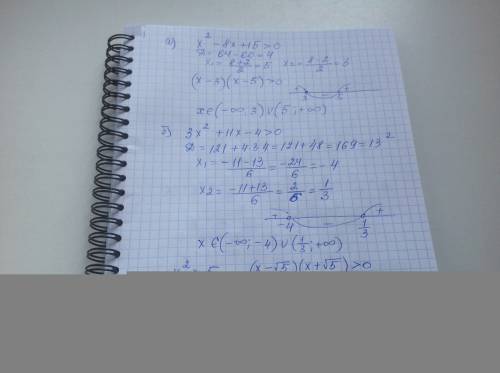 а) x² - 8x + 15 > 0
D = 64 - 60 = 4
x₁ = (8+2)/2 = 5 x₂ = (8-2)/2 = 3
(x-3)(x-5) > 0
+ - +
3 5
x ∈ (-∞; 3) ∪ (5; +∞)
б) 3x² + 11x - 4 > 0
D = 121 + 4·3·4 = 121 + 48 = 169 = 13²
x₁ = (-11-13)/6 = -24/6 = -4
x₂ = (-11+13)/6 = 2/6 = 1/3
+ - +
-4 1/3
x ∈ (-∞; -4) ∪ (1/3; +∞)
(x-√5)(x+√5) > 0